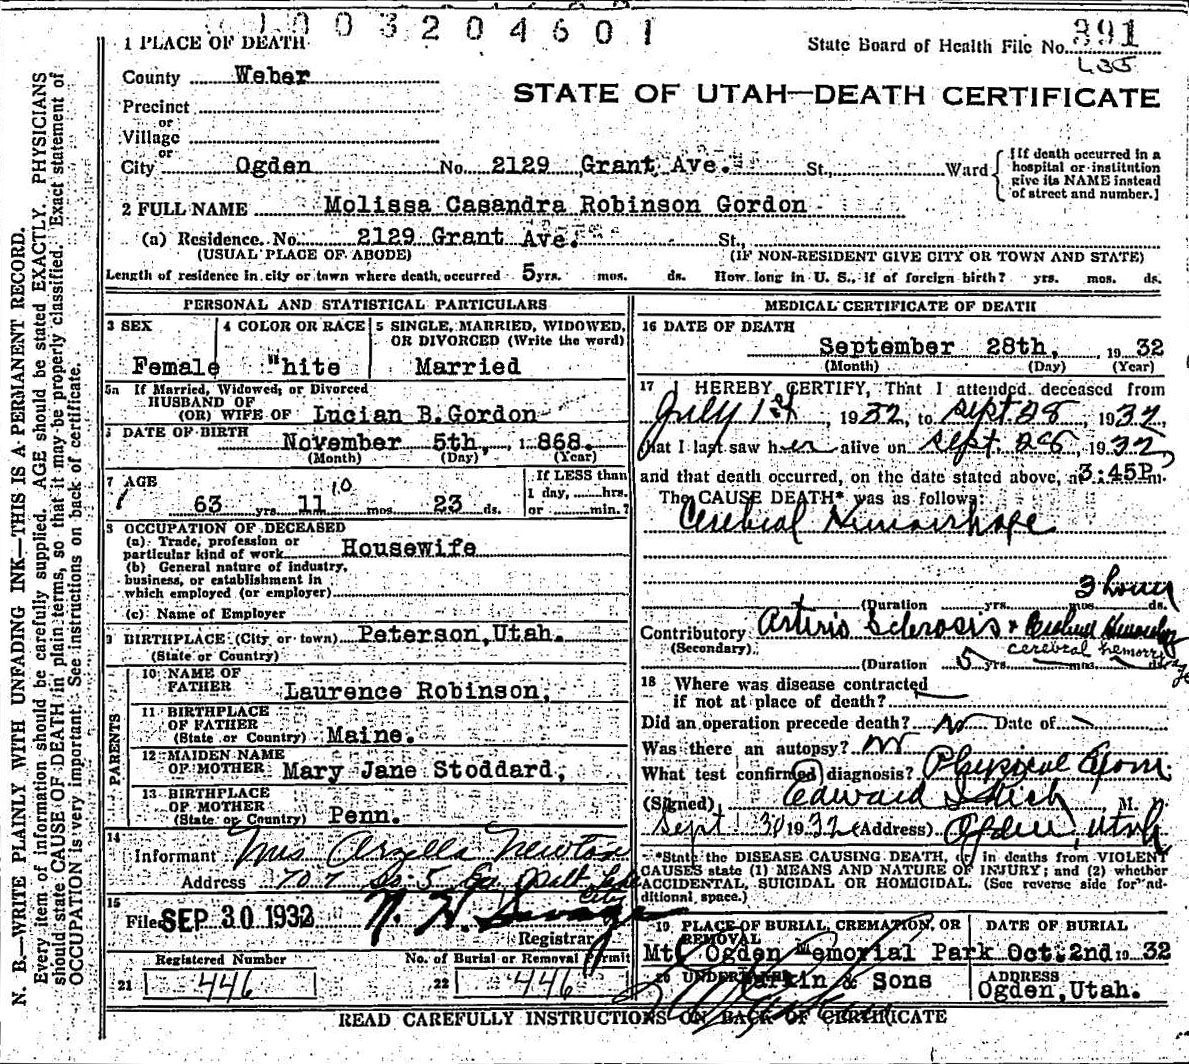 1003204601
1 PLACE OF DEATH
State Board of Health File No. 391
County Weber
STATE OF UTAH—DEATH CERTIFICATE
Precinct
or
Village
or
City Ogden No. 2129 Grant Ave. St., Ward
[If death occurred in a hospital or institution give its NAME instead of street and number.]
2 FULL NAME Molissa Casandra Robinson Gordon
(a) Residence. No. 2129 Grant Ave. St.,
(USUAL PLACE OF ABODE) (IF NON-RESIDENT GIVE CITY OR TOWN AND STATE)
Length of residence in city or town where death occurred 5 yrs. mos. ds. How long in U. S., if of foreign birth? yrs. mos. ds.
PERSONAL AND STATISTICAL PARTICULARS
3 SEX
Female
4 COLOR OR RACE
White
5 SINGLE, MARRIED, WIDOWED, OR DIVORCED (Write the word)
Married
5a If Married, Widowed, or Divorced
HUSBAND OF
(OR) WIFE OF Lucian B. Gordon
DATE OF BIRTH
November 5th, 1868.
(Month) (Day) (Year)
7 AGE
63 yrs. 11 10 mos. 23 ds.
If LESS than
1 day, hrs.
or min.?
8 OCCUPATION OF DECEASED
(a) Trade, profession or
particular kind of work Housewife
(b) General nature of industry,
business, or establishment in
which employed (or employer)
(c) Name of Employer
9 BIRTHPLACE (City or town) Peterson, Utah.
(State or Country)
PARENTS
10 NAME OF
FATHER Laurence Robinson,
11 BIRTHPLACE
OF FATHER
(State or Country) Maine.
12 MAIDEN NAME
OF MOTHER Mary Jane Stoddard,
13 BIRTHPLACE
OF MOTHER
(State or Country) Penn.
14
Informant Mrs Arzella Newton
Address 707 So. 5 Ea Salt Lake
City
15
Filed SEP 30 1932
Registrar
Registered Number
21 446
No. of Burial or Removal Permit
22 446
MEDICAL CERTIFICATE OF DEATH
16 DATE OF DEATH
September 28th, 1932
(Month) (Day) (Year)
17 I HEREBY CERTIFY, That I attended deceased from
July 1st, 1932, to Sept 28, 1932,
that I last saw her alive on Sept. 28, 1932,
and that death occurred, on the date stated above, at 3:45P.m.
The CAUSE DEATH* was as follows:
Cerebral Hemorrhage
3 hours
(Duration yrs. mos. ds.
Contributory Arterio Sclerosis + Cerebral Hemorrhage
(Secondary) cerebral hemorrhage
(Duration 5 yrs. mos. ds.
18 Where was disease contracted
if not at place of death?
Did an operation precede death? No Date of
Was there an autopsy? no
What test confirmed diagnosis? Physical Exam.
(Signed) Edward M.
Sept 30 1932 (Address) Ogden, Utah
*State the DISEASE CAUSING DEATH, or in deaths from VIOLENT
CAUSES state (1) MEANS AND NATURE OF INJURY; and (2) whether
ACCIDENTAL, SUICIDAL OR HOMICIDAL. (See reverse side for additional space.)
19 PLACE OF BURIAL, CREMATION, OR REMOVAL
Mt. Ogden Memorial Park
DATE OF BURIAL
Oct. 2nd 1932
20 UNDERTAKER
Larkin & Sons
ADDRESS
Ogden, Utah.
READ CAREFULLY INSTRUCTIONS ON BACK OF CERTIFICATE
N. B.—WRITE PLAINLY WITH UNFADING INK—THIS IS A PERMANENT RECORD.
Every item of information should be carefully supplied. AGE should be stated EXACTLY. PHYSICIANS
should state CAUSE OF DEATH in plain terms, so that it may be properly classified. Exact statement of
OCCUPATION is very important. See instructions on back of certificate.